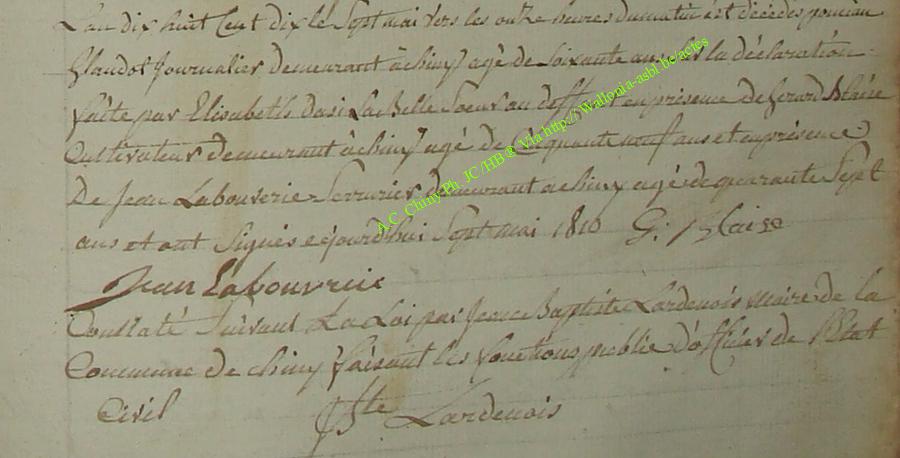 L'an dix huit Cent dix le Sept mai vers les onze heures du matin est décédes poncian
Glaudot Journalier demeurant à chiny agé de Soixante ans Sur la déclaration
faite par Elisabeth dasi La Belle Soeur au deffunt en présence de Gerard Blaise
Cultivateur demeurant à chiny agé de Cinquante neuf ans et en présence
De Jean Labouverie Serrurier demeurant a chiny agé de quarante Sept
ans et ont Signés ejourdhui Sept mai 1810 G: Blaise
Jean Labouverie
Constaté Suivant La Loi par Jean Baptiste Lardenois maire de la
Commune de chiny faisant les fonctions public d'officier de l'Etat
Civil JBte Lardenois
A.C. Chiny Ph. JC /HB ® Via http://Wallonia-asbl be/actes